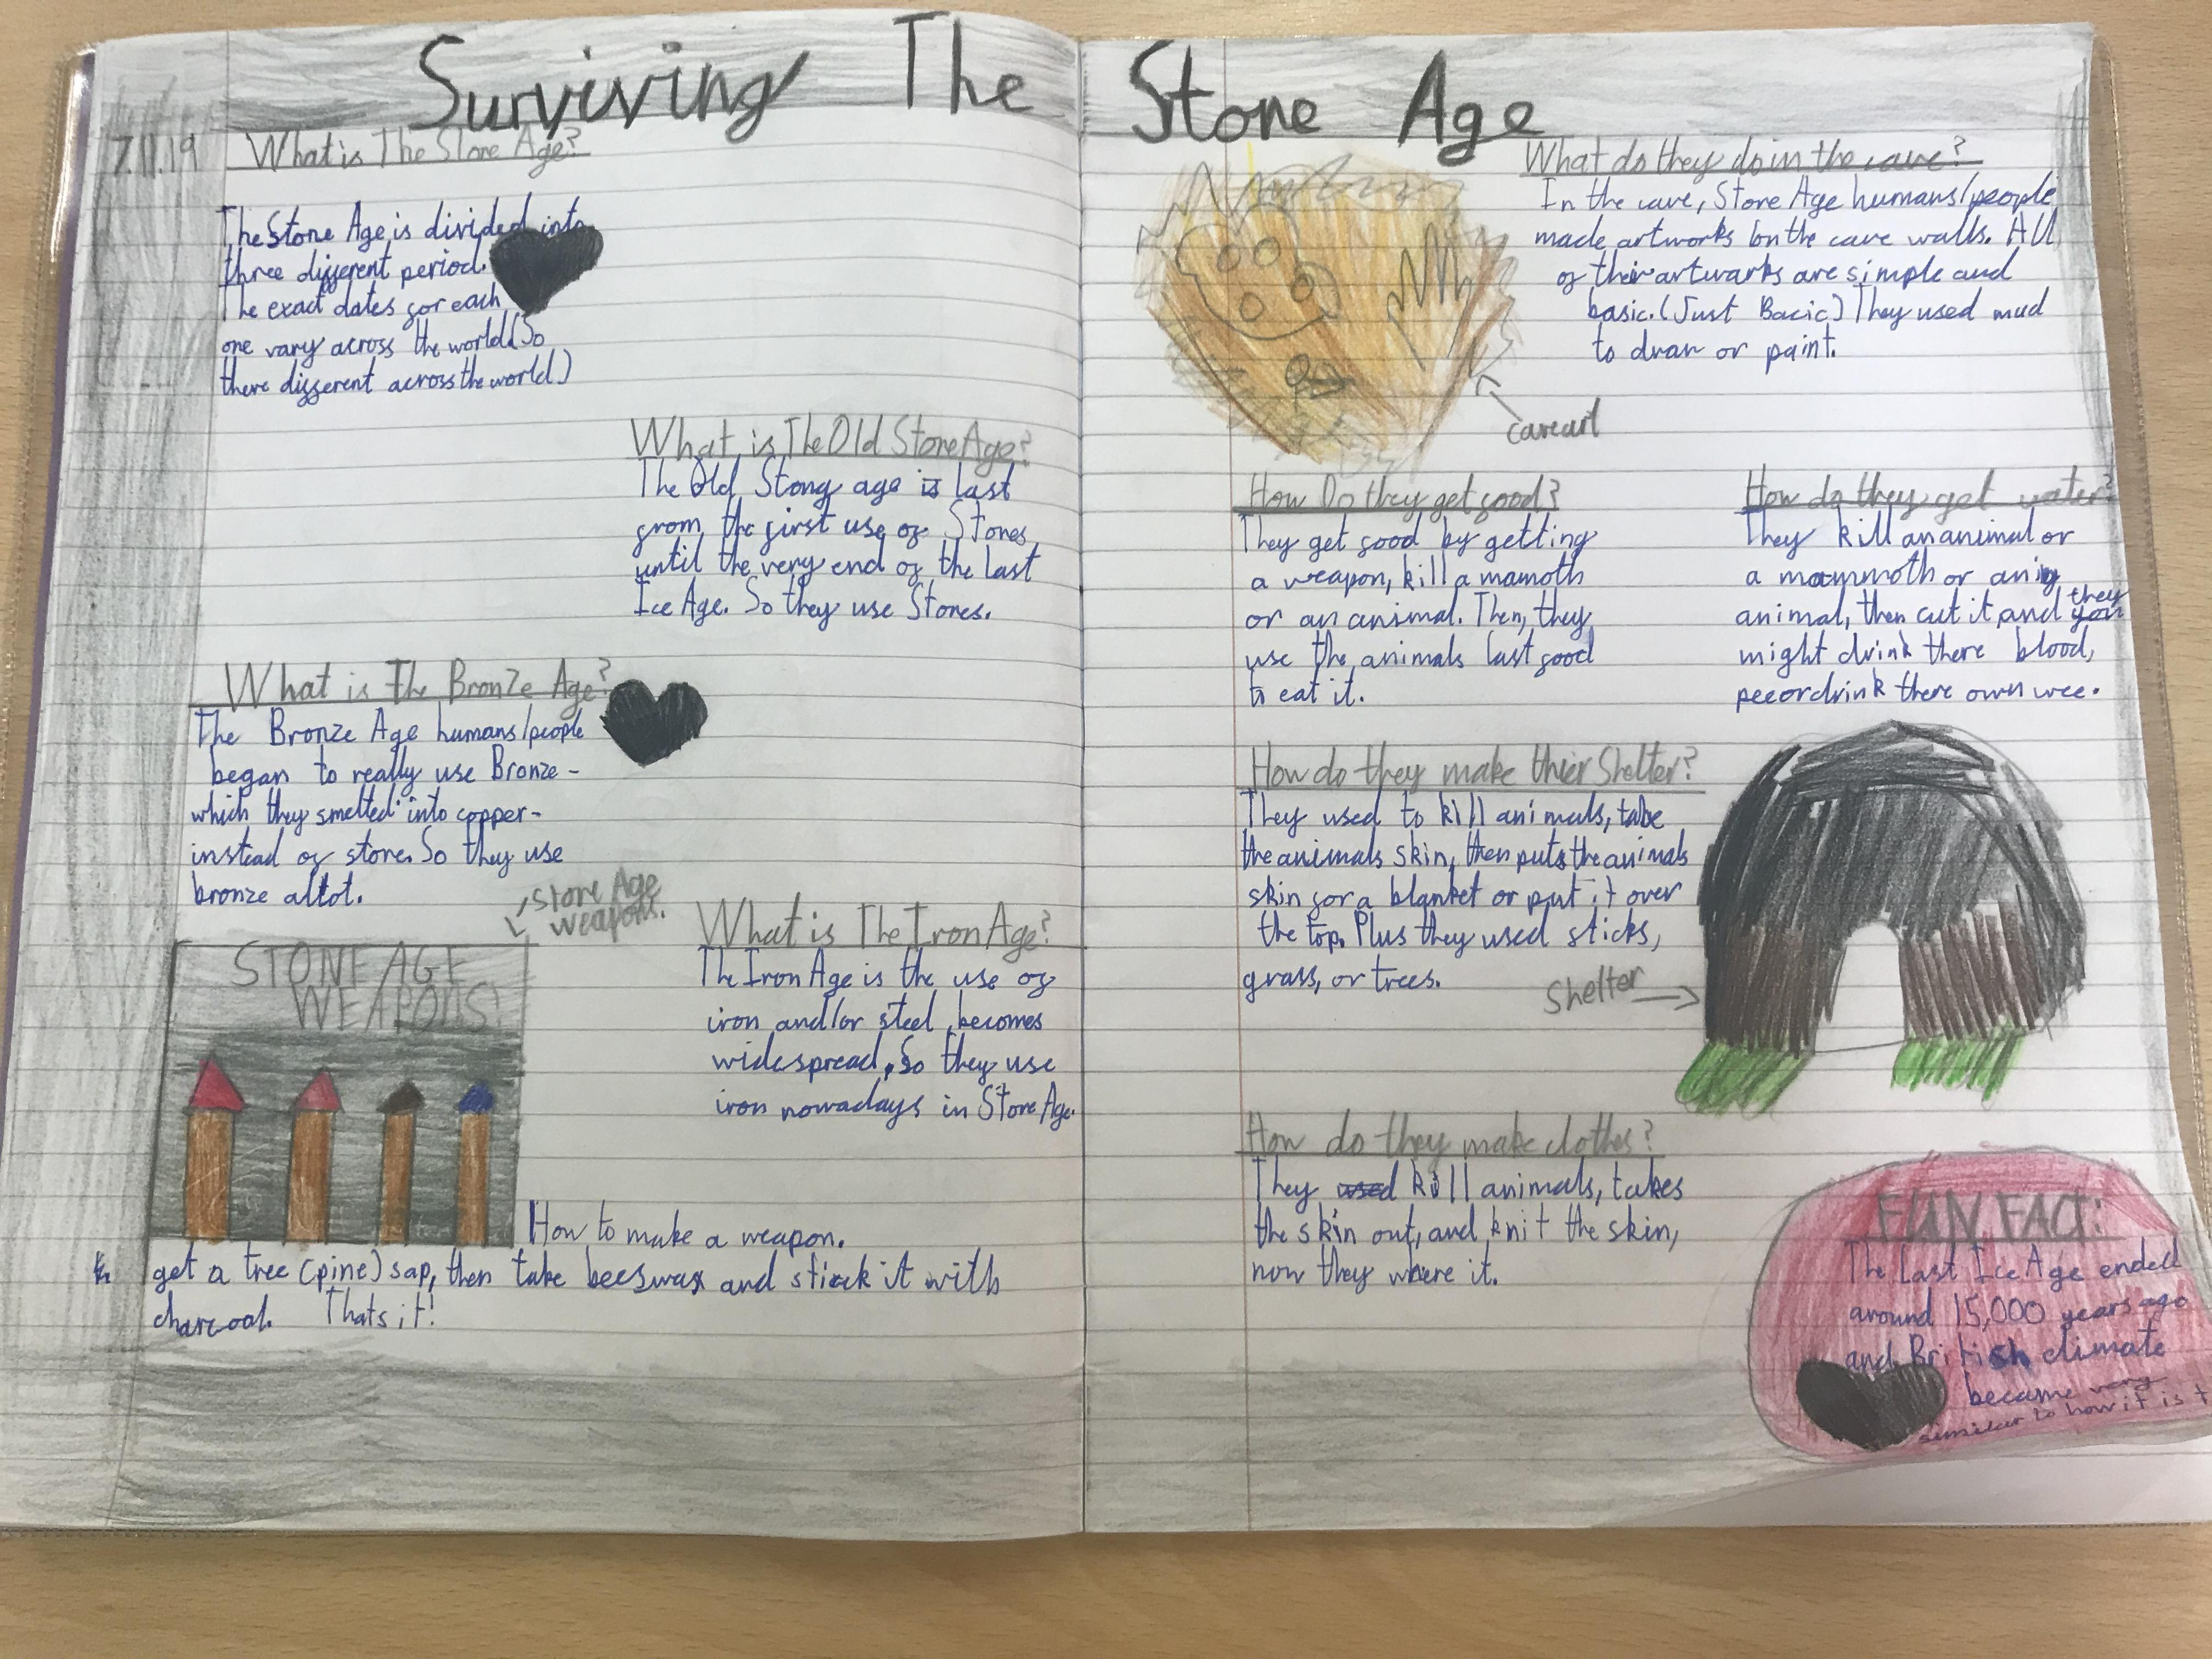 Surviving The Stone Age
7.11.19
What is The Stone Age?
The Stone Age is divided into
three different period.
The exact dates for each
one vary across the world (So
there different across the world)
What is The Old Stone Age?
The Old Stony age is last
from the first use of Stones
until the very end of the last
Ice Age. So they use Stones.
What is The Bronze Age?
The Bronze Age humans/people
began to really use Bronze -
which they smelted into copper -
instead of stone. So they use
bronze altot.
Stone Age
weapons.
STONE AGE
WEAPONS!
What is The Iron Age?
The Iron Age is the use of
iron and/or steel becomes
widespread. So they use
iron nowadays in Stone Age.
How to make a weapon.
get a tree (pine) sap, then take beeswax and stick it with
charcoal. Thats it!
What do they do in the cave?
In the cave, Stone Age humans/people
made artworks on the cave walls. All
of their artwarks are simple and
basic. (Just Basic) They used mud
to draw or paint.
cave art
How Do they get food?
They get food by getting
a weapon, kill a mamoth
or an animal. Then, they
use the animals last food
to eat it.
How do they get water?
They kill an animal or
a mammoth or any
animal, then cut it and they
might drink there blood,
pee or drink there own wee.
How do they make thier Shelter?
They used to kill animals, take
the animals skin, then puts the animals
skin for a blanket or put it over
the top. Plus they used sticks,
grass, or trees.
Shelter
How do they make clothes?
They used kill animals, takes
the skin out, and knit the skin,
now they where it.
FUN FACT:
The last Ice Age ended
around 15,000 years ago
and British climate
became very
similar to how it is t